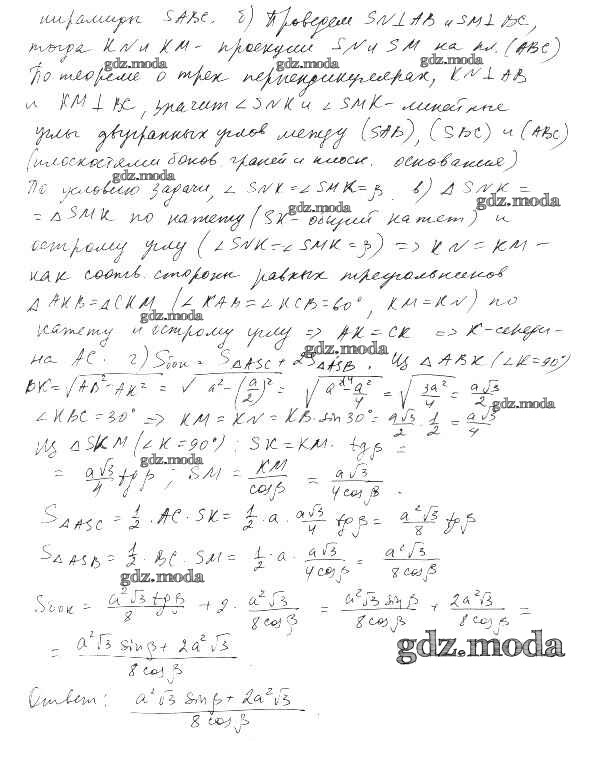 пирамиды SABC. б) Проведем SN⊥AB и SM⊥BC,
тогда KN и KM - проекции SN и SM на пл. (ABC)
gdz.moda gdz.moda
По теореме о трех перпендикулярах, KN⊥AB
и KM⊥BC, значит ∠SNK и ∠SMK - линейные
gdz.moda gdz.moda
углы двугранных углов между (SAB), (SBC) и (ABC)
(плоскостями боков. граней и плоск. основания)
gdz.moda
По условию задачи, ∠SNK = ∠SMK = β. в) △SNK =
gdz.moda gdz.moda
= △SMK по катету (SK - общий катет) и
острому углу (∠SNK = ∠SMK = β) => KN = KM -
как соотв. стороны равных треугольников
△AKB = △CKM (∠KAB = ∠KCB = 60°, KM = KN) по
gdz.moda
катету и острому углу => AK = CK => K - середи-
gdz.moda
на AC. г) Sбок = S△ASC + 2S△ASB. Из △ABK (∠K = 90°)
BK = √(AB² - AK²) = √(a² - (a/2)²) = √((a²4 - a²)/4) = √(3a²/4) = a√3/2
gdz.moda gdz.moda
∠KBC = 30° => KM = KN = KB · sin 30° = a√3/2 · 1/2 = a√3/4
Из △SKM (∠K = 90°): SK = KM · tg β =
gdz.moda
= a√3/4 tg β; SM = KM/cos β = a√3/(4 cos β).
S△ASC = 1/2 · AC · SK = 1/2 · a · a√3/4 tg β = a²√3/8 tg β
S△ASB = 1/2 · BC · SM = 1/2 · a · a√3/(4 cos β) = a²√3/(8 cos β)
gdz.moda
Sбок = a²√3 tg β/8 + 2 · a²√3/(8 cos β) = a²√3 sin β/(8 cos β) + 2a²√3/(8 cos β) =
= (a²√3 sin β + 2a²√3)/(8 cos β)
gdz.moda
Ответ: (a²√3 sin β + 2a²√3)/(8 cos β).